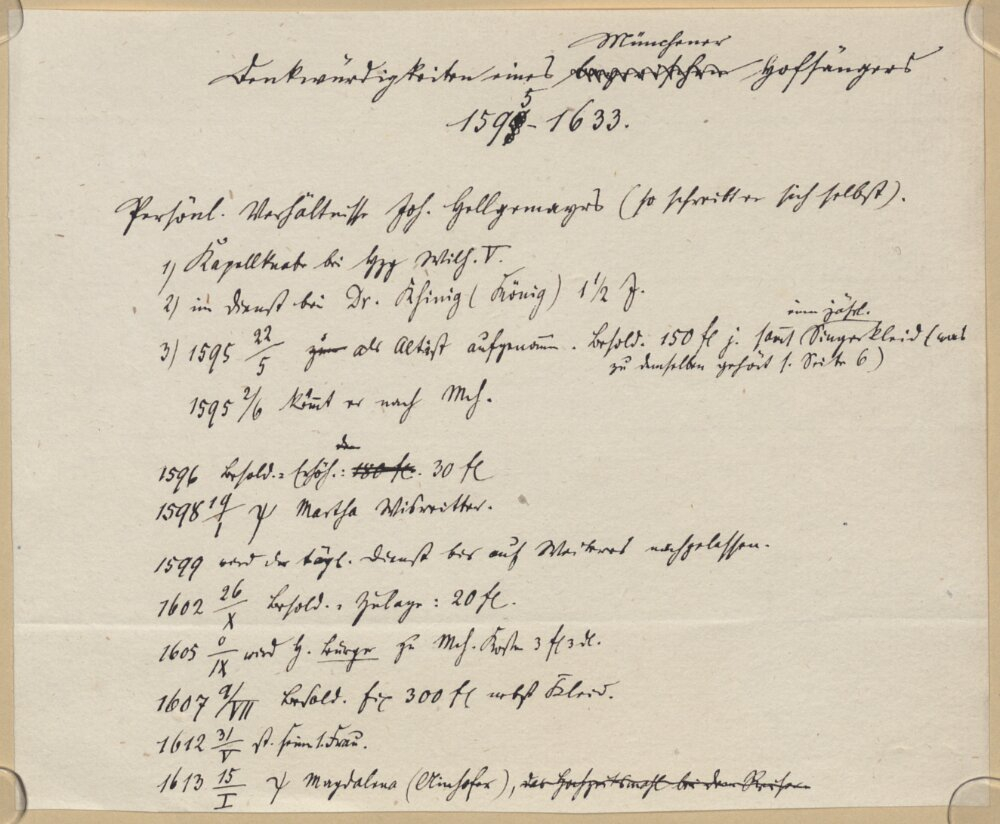 Münchener
Denkwürdigkeiten eines bayerischen Hofsängers
5
1598 - 1633.
Persönl. Verhältnisse Joh. Hellgemayrs (so schreibt er sich selbst).
1) Kapellknabe bei Hzg Wilh. V.
2) im Dienst bei Dr. Khinig (König) 1 1/2 J.
einem jährl.
3) 1595 22/5 zum als Altist aufgenomm. Besold. 150 fl j. sammt Singerkleid (was
zu demselben gehört s. Seite 6)
1595 2/6 kommt er nach Mch.
1596 Besold.= Erhöh.: 180 fl. 30 fl
1598 19/I Martha Wisreitter.
1599 wird der tägl. Dienst bis auf Weiteres nachgelassen.
1602 26/X Besold.= Zulage: 20 fl.
1605 /IX wird H. Bürger zu Mch. Kosten 3 fl 3 dl.
1607 /VII Besold. fix 300 fl nebst Kleid.
1612 31/V st. seine 1. Frau.
1613 15/I Magdalena (Ainhofer), das Hochzeitsmahl bei dem